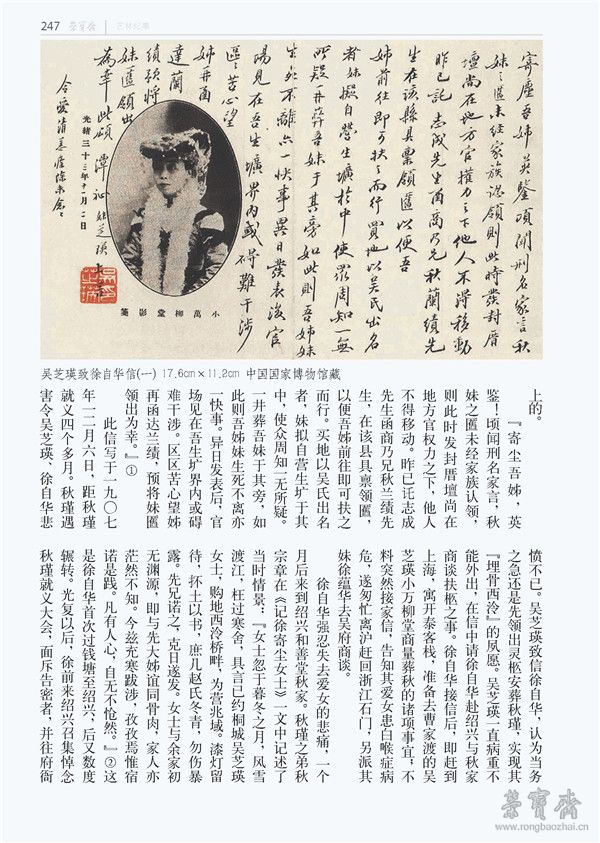 247 荣宝斋
寄塵吾姊英鑒頃聞刑名家言秋
妹之匶未經家族認領則此時發封厝
壇尚在地方官權力之下他人不得移動
昨已託志成先生函商乃兄秋蘭績先
生在該縣具稟領匶以便吾
姊前往即可扶之而行買地以吳氏出名
者妹擬自營生壙於中使眾周知一無
所疑一井葬吾妹于其旁如此則吾姊妹
生死不離亦一快事異日發表後官
場見在吾生壙界內或碍難干涉
區區苦心望
姊再函
達蘭
績預將
妹匶領出
為幸此頌 潭祉 妹芝瑛上
小萬柳堂影箋
吴芝瑛致徐自华信(一) 17.6cm×11.2cm 中国国家博物馆藏
上的。
『寄尘吾姊，英
鉴！顷闻刑名家言，秋
妹之匶未经家族认领，
则此时发封厝坛尚在
地方官权力之下，他人
不得移动。昨已讬志成
先生函商乃兄秋兰绩先
生，在该县具禀领匶，
以便吾姊前往即可扶之
而行。买地以吴氏出名
者，妹拟自营生圹于其
中，使众周知一无所疑。
一井葬吾妹于其旁，如
此则吾姊妹生死不离亦
一快事。异日发表后，官
场见在吾生圹界内或碍
难干涉。区区苦心望姊
再函达兰绩，预将妹匶
领出为幸。』①
此信写于一九〇七
年一二月六日，距秋瑾
就义四个多月。秋瑾遇
害令吴芝瑛、徐自华悲
愤不已。吴芝瑛致信徐自华，认为当务
之急还是先领出灵柩安葬秋瑾，实现其
『埋骨西泠』的夙愿。吴芝瑛一直病重不
能外出，在信中请徐自华赴绍兴与秋家
商谈扶柩之事。徐自华接信后，即赶到
上海，寓开泰客栈，准备去曹家渡的吴
芝瑛小万柳堂商量葬秋的诸项事宜，不
料突然接家信，告知其爱女患白喉症病
危，遂匆忙离沪赶回浙江石门，另派其
妹徐蕴华去吴府商谈。
徐自华强忍失去爱女的悲痛，一个
月后来到绍兴和善堂秋家。秋瑾之弟秋
宗章在《记徐寄尘女士》一文中记述了
当时情景，『女士忽于暮冬之月，风雪
渡江，枉过寒舍，具言已约桐城吴芝瑛
女士，购地西泠桥畔，为营兆域。漆灯留
待，抔土以书，庶几赵氏冬青，勿伤暴
露。先兄诺之，克日遂发。女士与余家初
无渊源，即与先大姊谊同骨肉，家人亦
茫然不知。今兹充寒跋涉，孜孜焉惟宿
诺是践。凡有人心，自无不怆然。』②这
是徐自华首次过钱塘至绍兴，后又数度
辗转。光复以后，徐前来绍兴召集悼念
秋瑾就义大会，面斥告密者，并往府衙
荣宝斋
www.rongbaozhai.cn